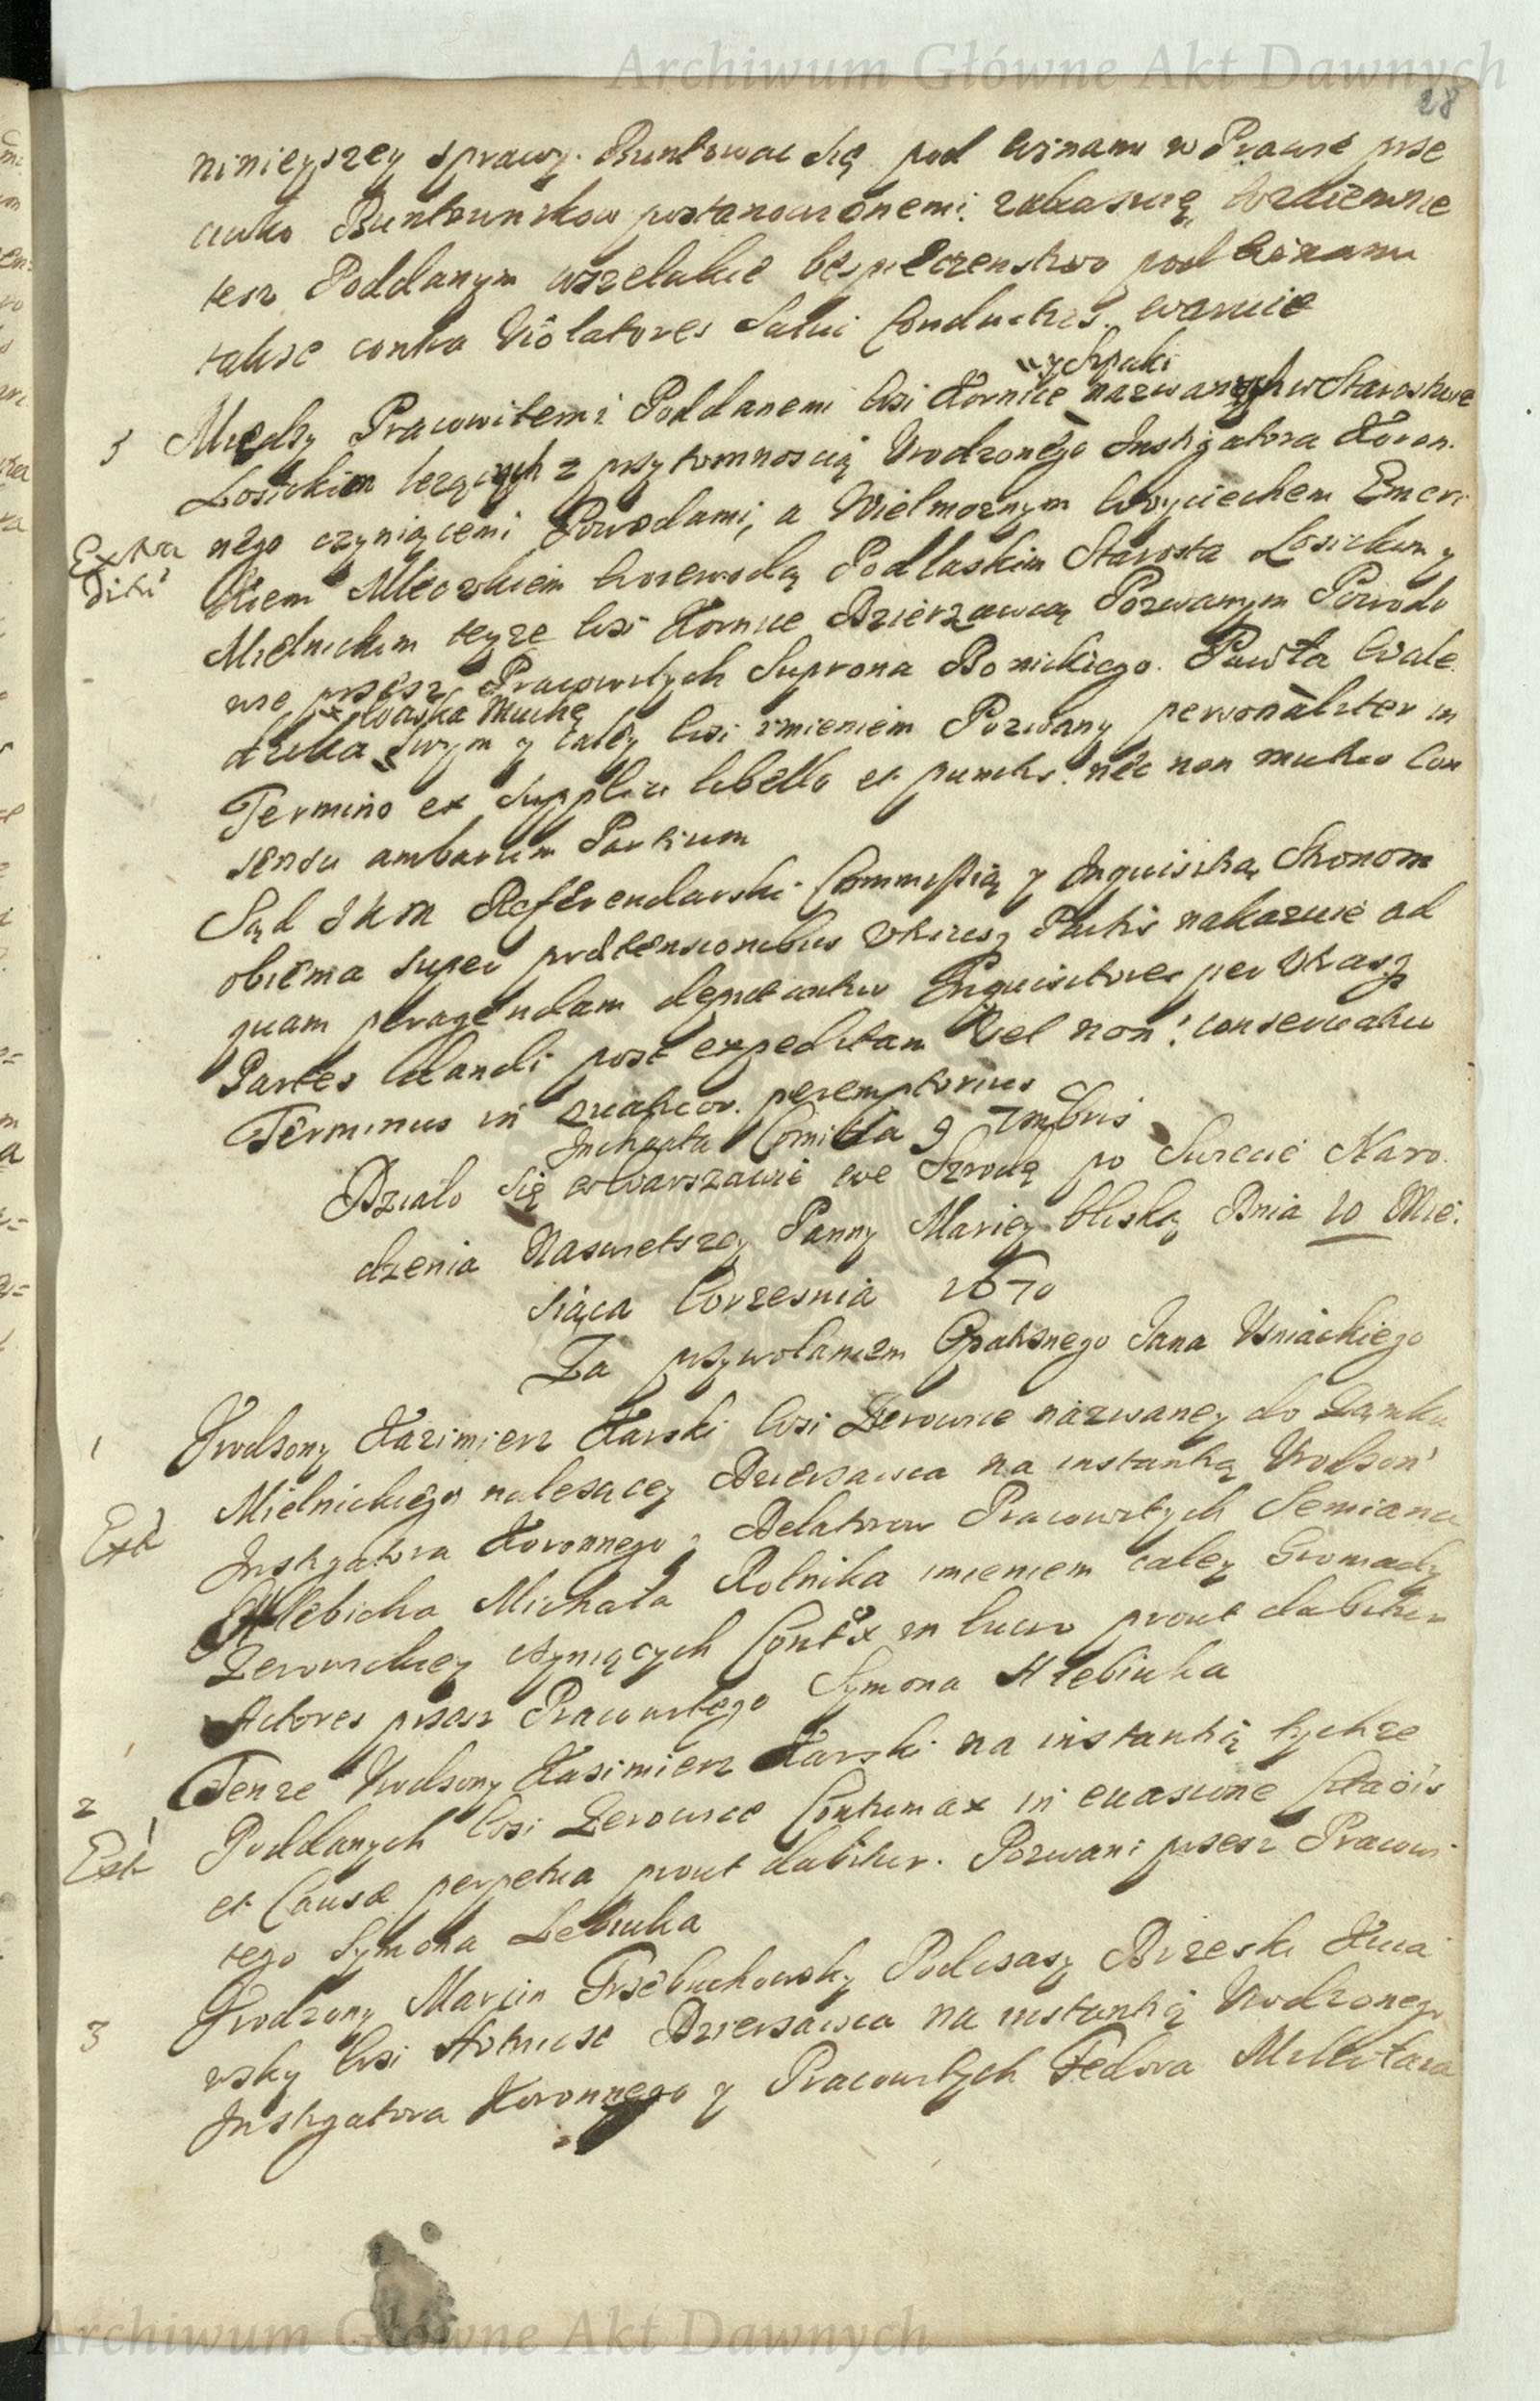 Archiwum Główne Akt Dawnych
28
ninieyszey sprawy. Buntowac się pod winami w Prawie prze
ciwko Buntownikow postanowionemi. zakazuię, wzaiemnie
tesz Poddanym wszelakie bespieczenstwo pod winami
takze contra Violatores Salvi Conductus. waruie
y Szpaki
5 Między Pracowitemi Poddanemi wsi Kornice nazwanych w Starostwie
Losickim lezących z przytomnoscią Urodzonego Instigatora Koron.
nego czyniącemi Powodami, a Wielmoznym Woyciechem Emeri
Extra
ditū
kiem Mleczkiem Woiewodą Podlaskim Starostą Losickim y
Mielnickim teyze wsi Kornice Dzierzawcą Pozwanym Powodo
wie przesz Pracowitych Suprona Bonickiego. Pawła Wale
Waska Muchę
dziuka Swym y całey wsi imieniem Pozwany personaliter in
Termino ex supplici libello et punctis. nec non mutuo Con
sensu ambarum Partium
Sąd JKM Referendarski Commissią y Inquisitią Stronom
obiema super praetensionibus utriusq Partis nakazuie ad
quam peragendam deputantur Inquisitores per utasq
Partes dandi post expeditam vel non conservatur
Terminus in peremptorius
Inchoata Comitia 9 7mbris
Działo się w Warszawie we Szrodę po Swięcie Naro.
dzenia Naswietszey Panny Mariey bliską Dnia 10 Mie.
siąca Wrzesnia 1670
Za przywołaniem Opatrznego Jana Usniackiego
1 Urodzony Kazimierz Karski wsi Zerowice nazwaney do Zamku
Mielnickiego nalezącey Dzierzawca na instantią Urodzon
Ext
Instigatora Koronnego y Delatorow Pracowitych Semiana
Hlebicha Michała Rolnika imieniem całey Gromady
Zerowickiey czyniących Cont in lucro prout dabitur
Actores przesz Pracowitego Symona Hlebiuka
2 Tenze Urodzony Kasimierz Karski na instantią tychze
Ext
Poddanych wsi Zerowice Contumax in evasione
et Causae perpetua prout dabitur. Pozwani przesz Pracowi
tego Symona Lebiuka
3 Urodzony Marcin Trzebuchowsky Podczaszy Brzeski Kuia
wsky wsi Dzierzawca na instantią Urodzonego
Instigatora Koronnego y Pracowitych Fedora
Archiwum Główne Akt Dawnych